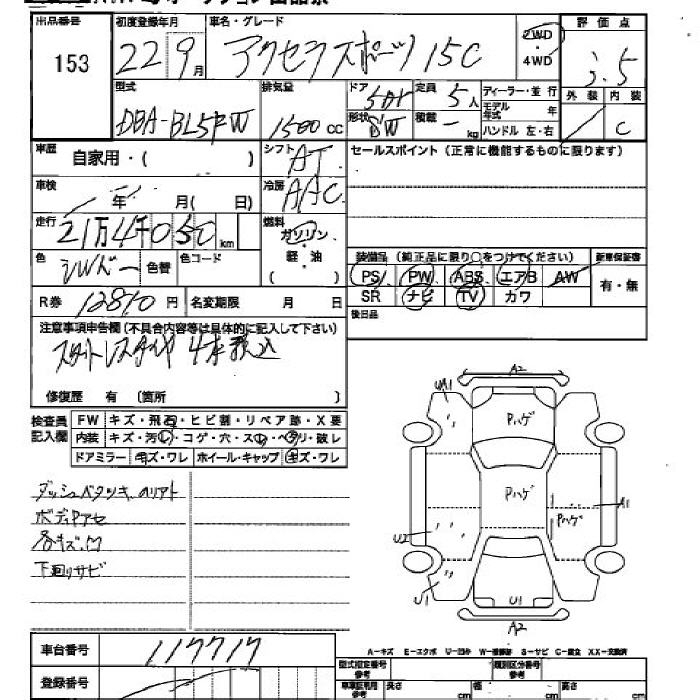 出品番号 153
初度登録年月 22 9月
車名・グレード アクセラスポーツ 15C
2WD
・
4WD
評価点 3.5
外装 内装 C
型式 DBA-BL5FW
排気量 1500 cc
ドア 5Dr
形状 SW
定員 5人
積載 - kg
ディーラー・並行
モデル年式 年
ハンドル 左・右
車歴 自家用・( )
シフト AT
セールスポイント (正常に機能するものに限ります)
車検 年 月( 日)
冷房 AAC
走行 21万4千050 km
燃料 ガソリン・軽・油 ( )
色 シルバー 色替 色コード
装備品 (純正品に限り○をつけてください) 新車保証書
PS PW ABS エアB AW 有・無
SR ナビ TV カワ
R券 12810 円 名変期限 月 日
後日品
注意事項申告欄 (不具合内容等は具体的に記入して下さい)
スタットレスタイヤ 4本積込
修復歴 有 (箇所 )
検査員記入欄 FW キズ・飛石・ヒビ割・リペア跡・X要
内装 キズ・汚レ・コゲ・穴・スレ・ヘタリ・破レ
ドアミラー キズ・ワレ ホイール・キャップ キズ・ワレ
A2
UA1
Pハゲ
Pハゲ
Pハゲ
A1
U2
U1
U1
A2
ダッシュベタツキ、のリアト
ボディヤケ
各キズ、凹
下廻りサビ
A-キズ E-エクボ U-凹み W-補修跡 S-サビ C-腐食 XX-交換済
車台番号 117717
型式指定番号 参考
類別区分番号 参考
登録番号
車庫証明用 参考 長さ cm 幅 cm 高さ cm